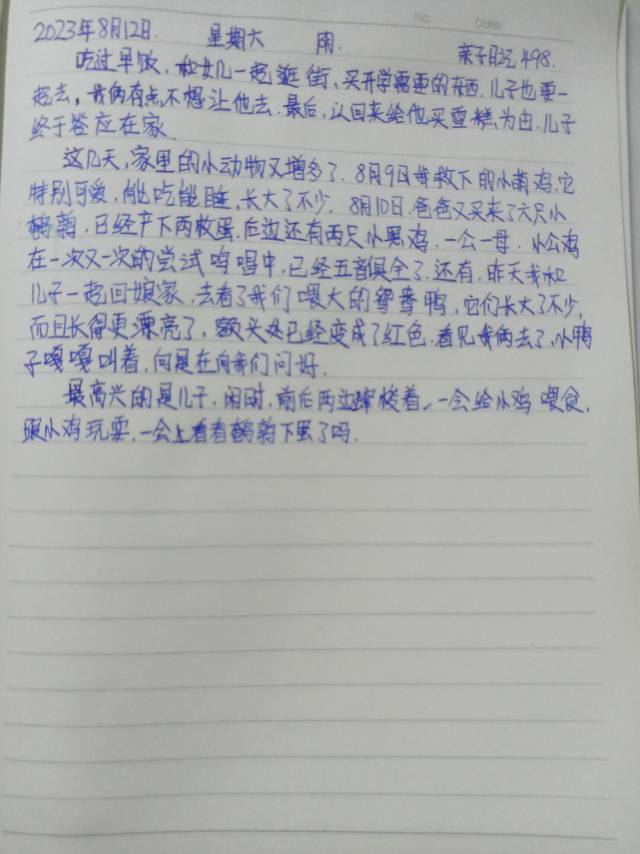 No: Date:
2023年8月12日. 星期六 雨. 亲子日记498.
吃过早饭,和女儿一起逛街,买开学需要的东西.儿子也要一
起去,我俩有点不想让他去.最后,以回来给他买雪糕为由,儿子
终于答应在家.
这几天,家里的小动物又增多了.8月9日带救下的小萌鸡,它
特别可爱,能吃能睡,长大了不少.8月10日,爸爸又买来了六只小
鹌鹑,已经产下两枚蛋.后边还有两只小黑鸡.一公一母.小公鸡
在一次又一次的尝试鸣唱中,已经五音俱全了.还有,昨天我和
儿子一起回娘家,去看了我们喂大的鸳鸯鸭,它们长大了不少,
而且长得更漂亮了,额头处已经变成了红色.看见我俩去了,小鸭
子嘎嘎叫着,向是在向我们问好.
最高兴的是儿子.闲时,前后两边穿梭着,一会给小鸡喂食,
跟小鸡玩耍,一会上看看鹌鹑下蛋了吗.